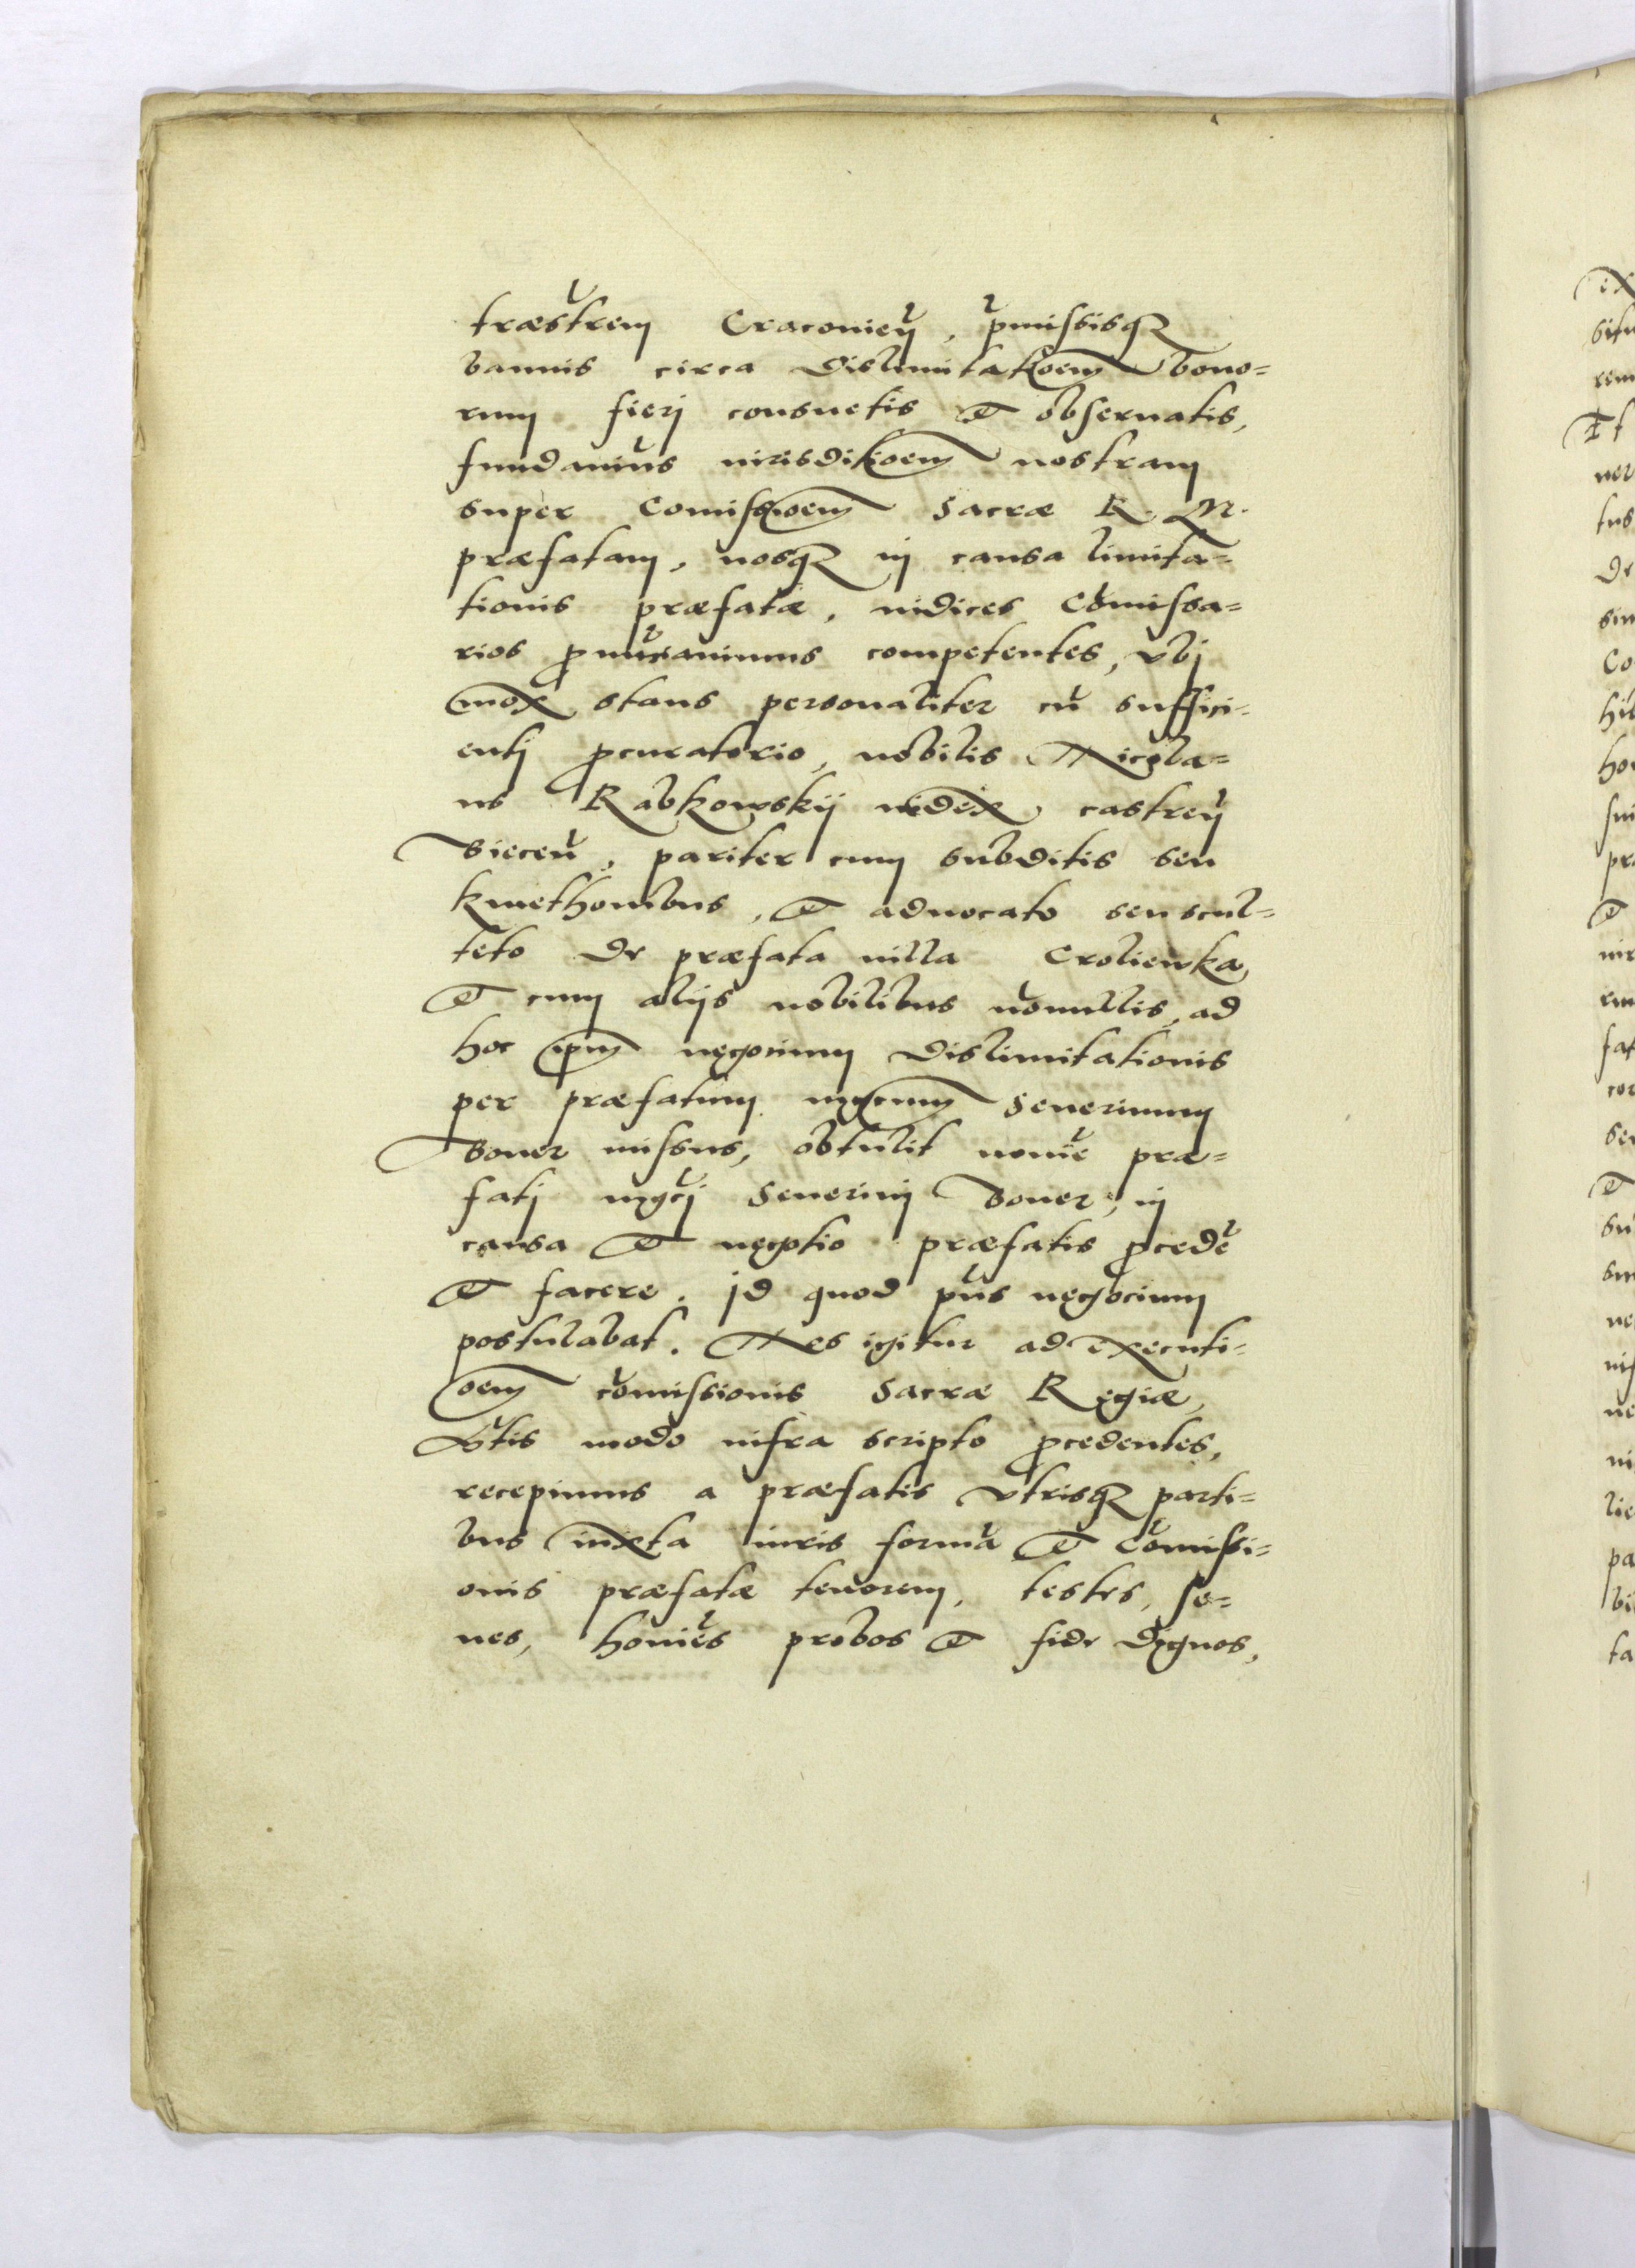 træstrem Cracovień, p̃missisq₃
bannis circa dislimitatioem bono=
rum fierj consuetis et obseruatis,
fundauim̃s iurisditioem nostram
super Comissioem Sacræ R. M.
præfatam, nosq₃ in causa limita=
tionis præfatæ, iudices Com̃issa=
rios ꝓnũciauimus competentes, vbj
mox stans personaliter cũ suffici=
entj ꝓcuratorio, nobilis Nicola=
us Rabkowskij iudex castreñ
Bieceñ, pariter cum subditis seu
kmethonibus, et aduocato seu scul=
teto de præfata uilla Croliewka,
et cum alijs nobilibus nõnullis, ad
hoc ip̃m negocium dislimitationis
per præfatum mg̃cum Seuerinum
Boner missus, obtulit nomĩe præ=
fatj mg̃cj Seuerinj Boner, in
causa et negotio præfatis ꝓcedẽ
et facere. jd quod pñs negocium
postulabat. Nos igitur ad executi=
oem com̃issionis Sacræ Regiæ
Mtis modo infra scripto ꝓcedentes,
recepimus a præfatis vtrisq₃ parti=
bus iuxta iuris formã et Com̃issi=
onis præfatæ tenorem, testes, se=
nes, homĩes probos et fide dignos,